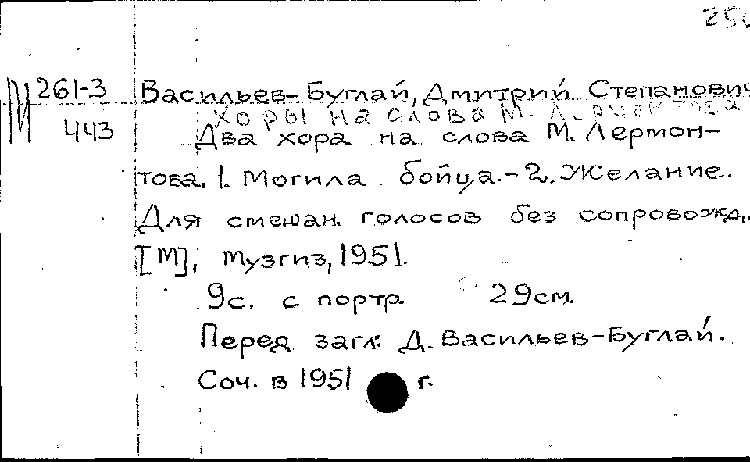 М 261-3
443
Васильев-Буглай, Дмитрий Степанович
Хоры на слова М. Лермонтова
Два хора на слова М. Лермон-
това. 1. Могила бойца. - 2. Желание.
Для смешан. голосов без сопровожд.
[М], Музгиз, 1951.
9с. с портр. 29см.
Перед загл: Д. Васильев-Буглай.
Соч. в 1951 г.